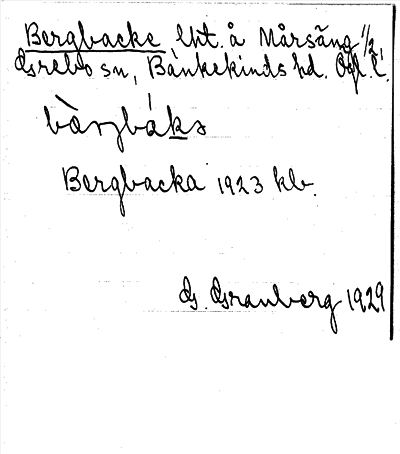 Bergbacke, lht. å Mårsäng 1/2,
Grebo sn, Bankekinds hd. Ögl. l.
Bergbacka 1923 klb.
G. Granberg 1929